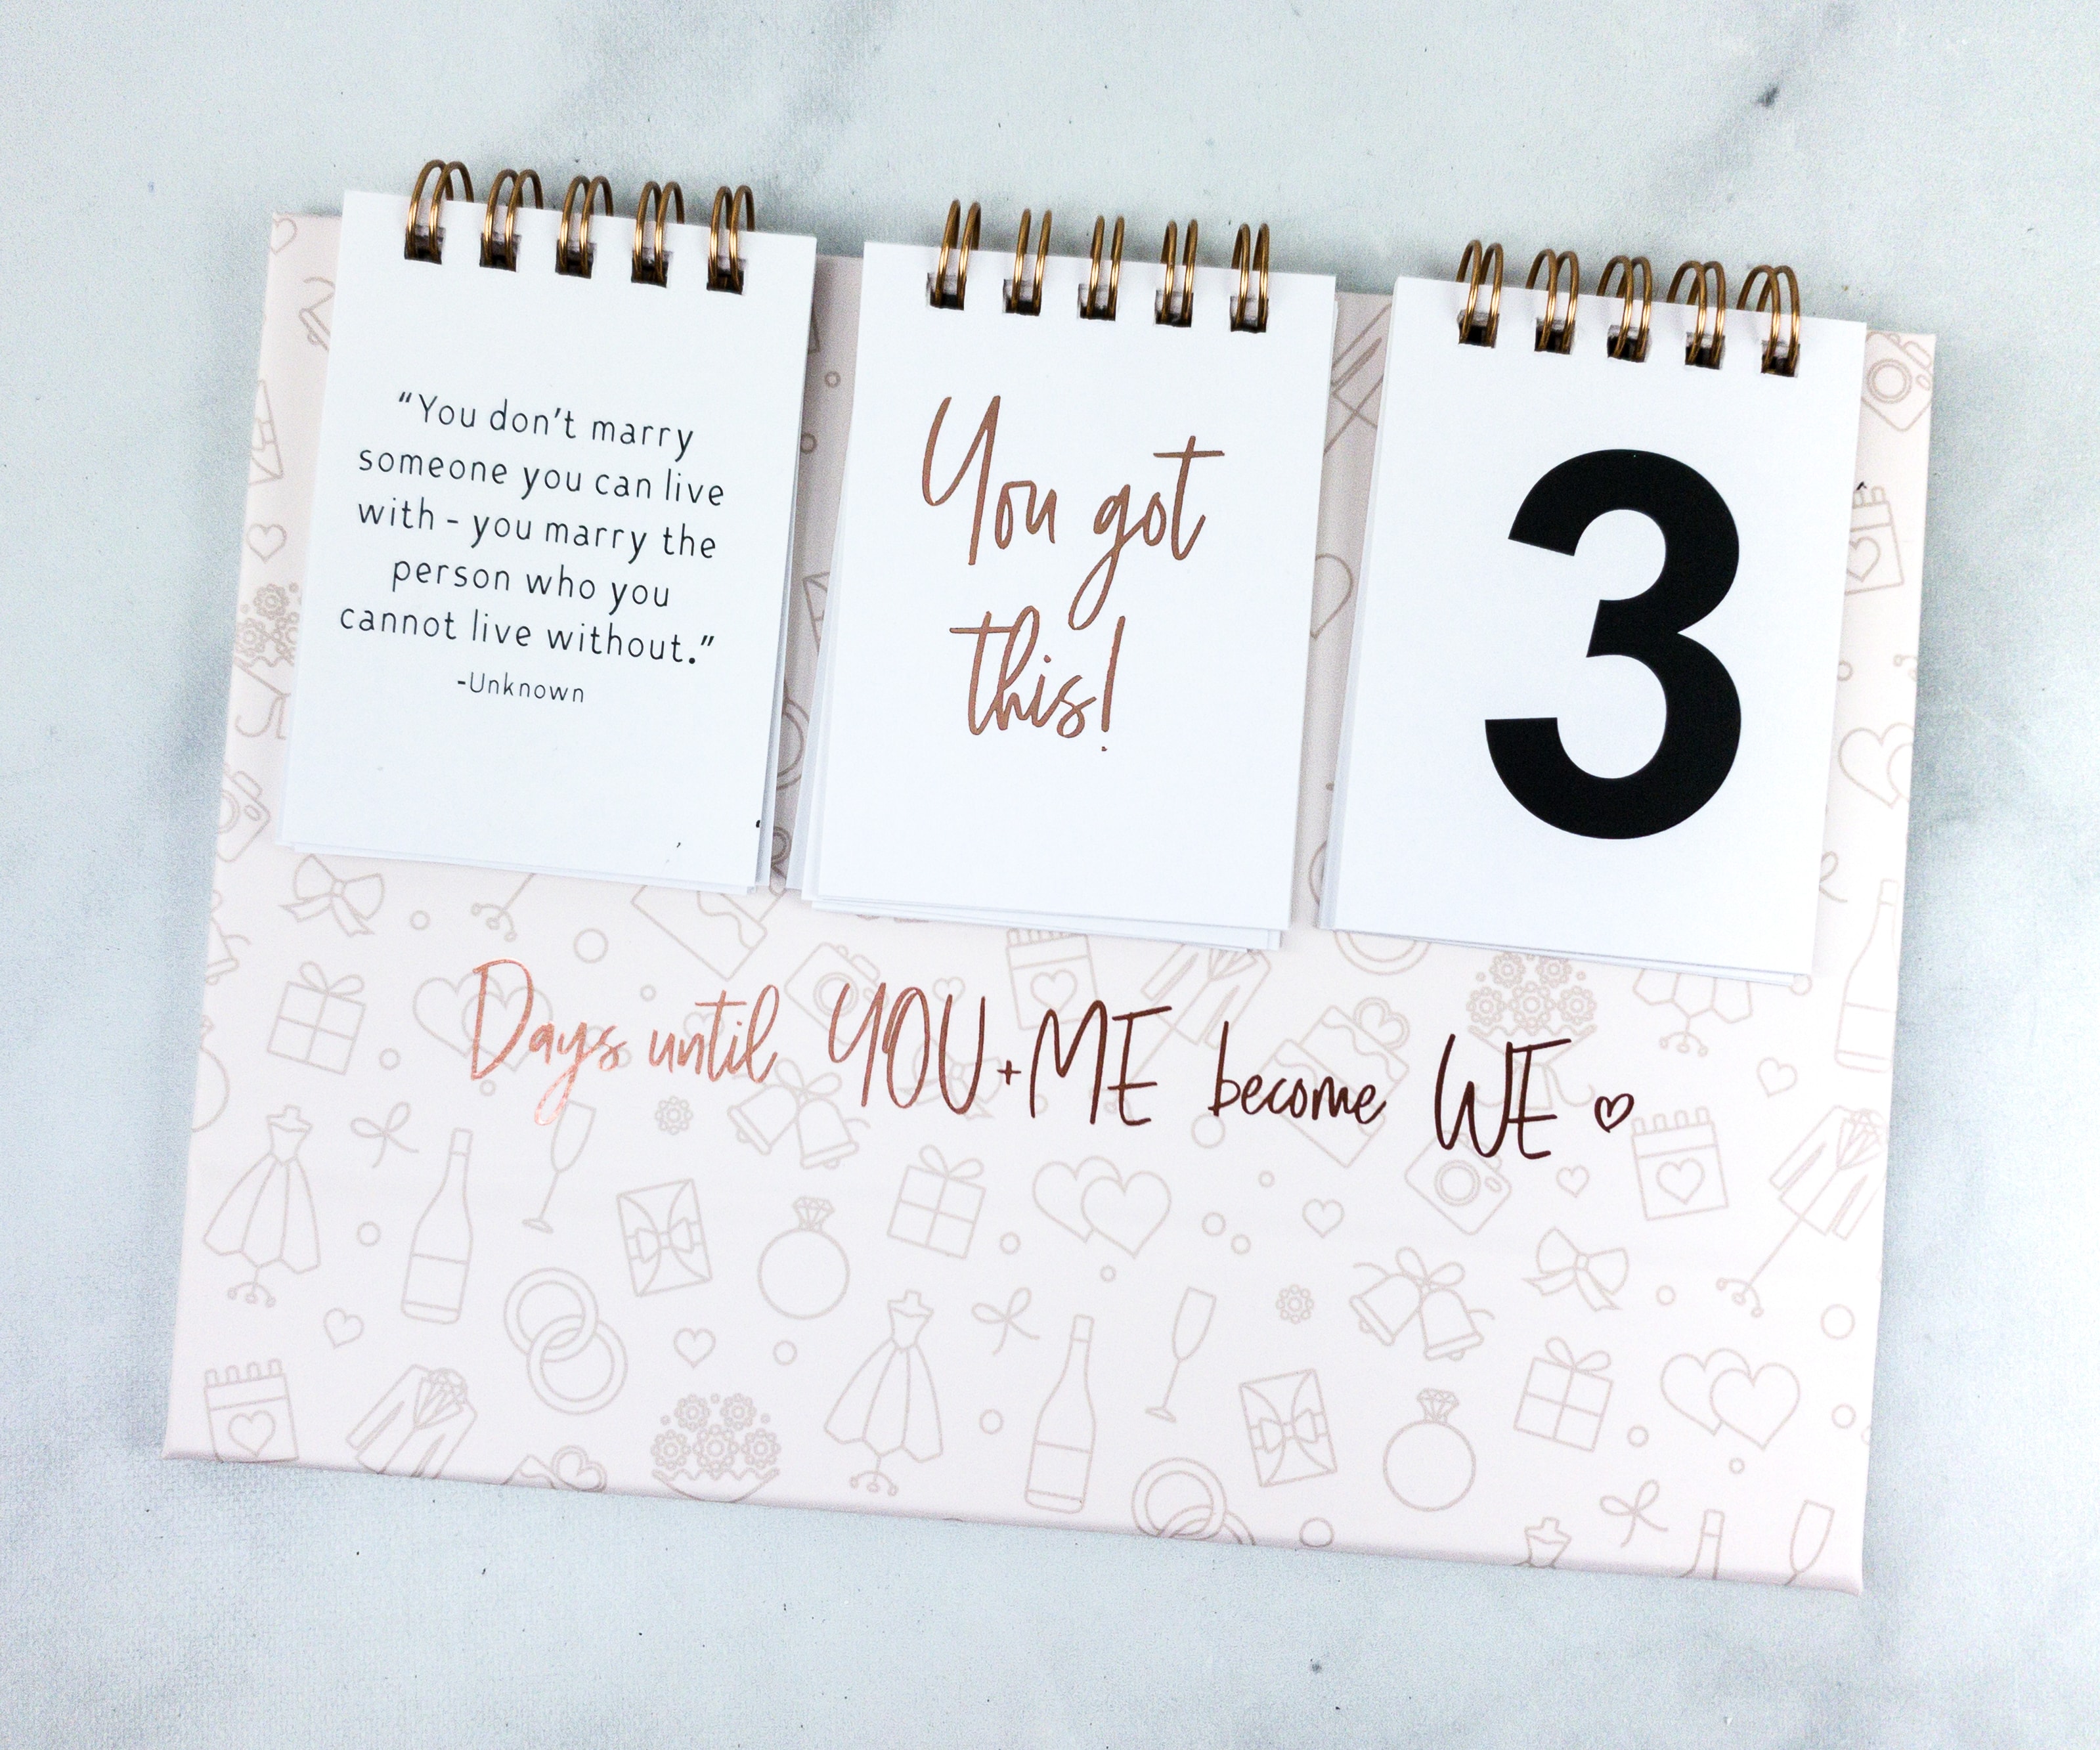 “You don’t marry
someone you can live
with - you marry the
person who you
cannot live without.”
-Unknown
You got
this!
3
Days until YOU + ME become WE